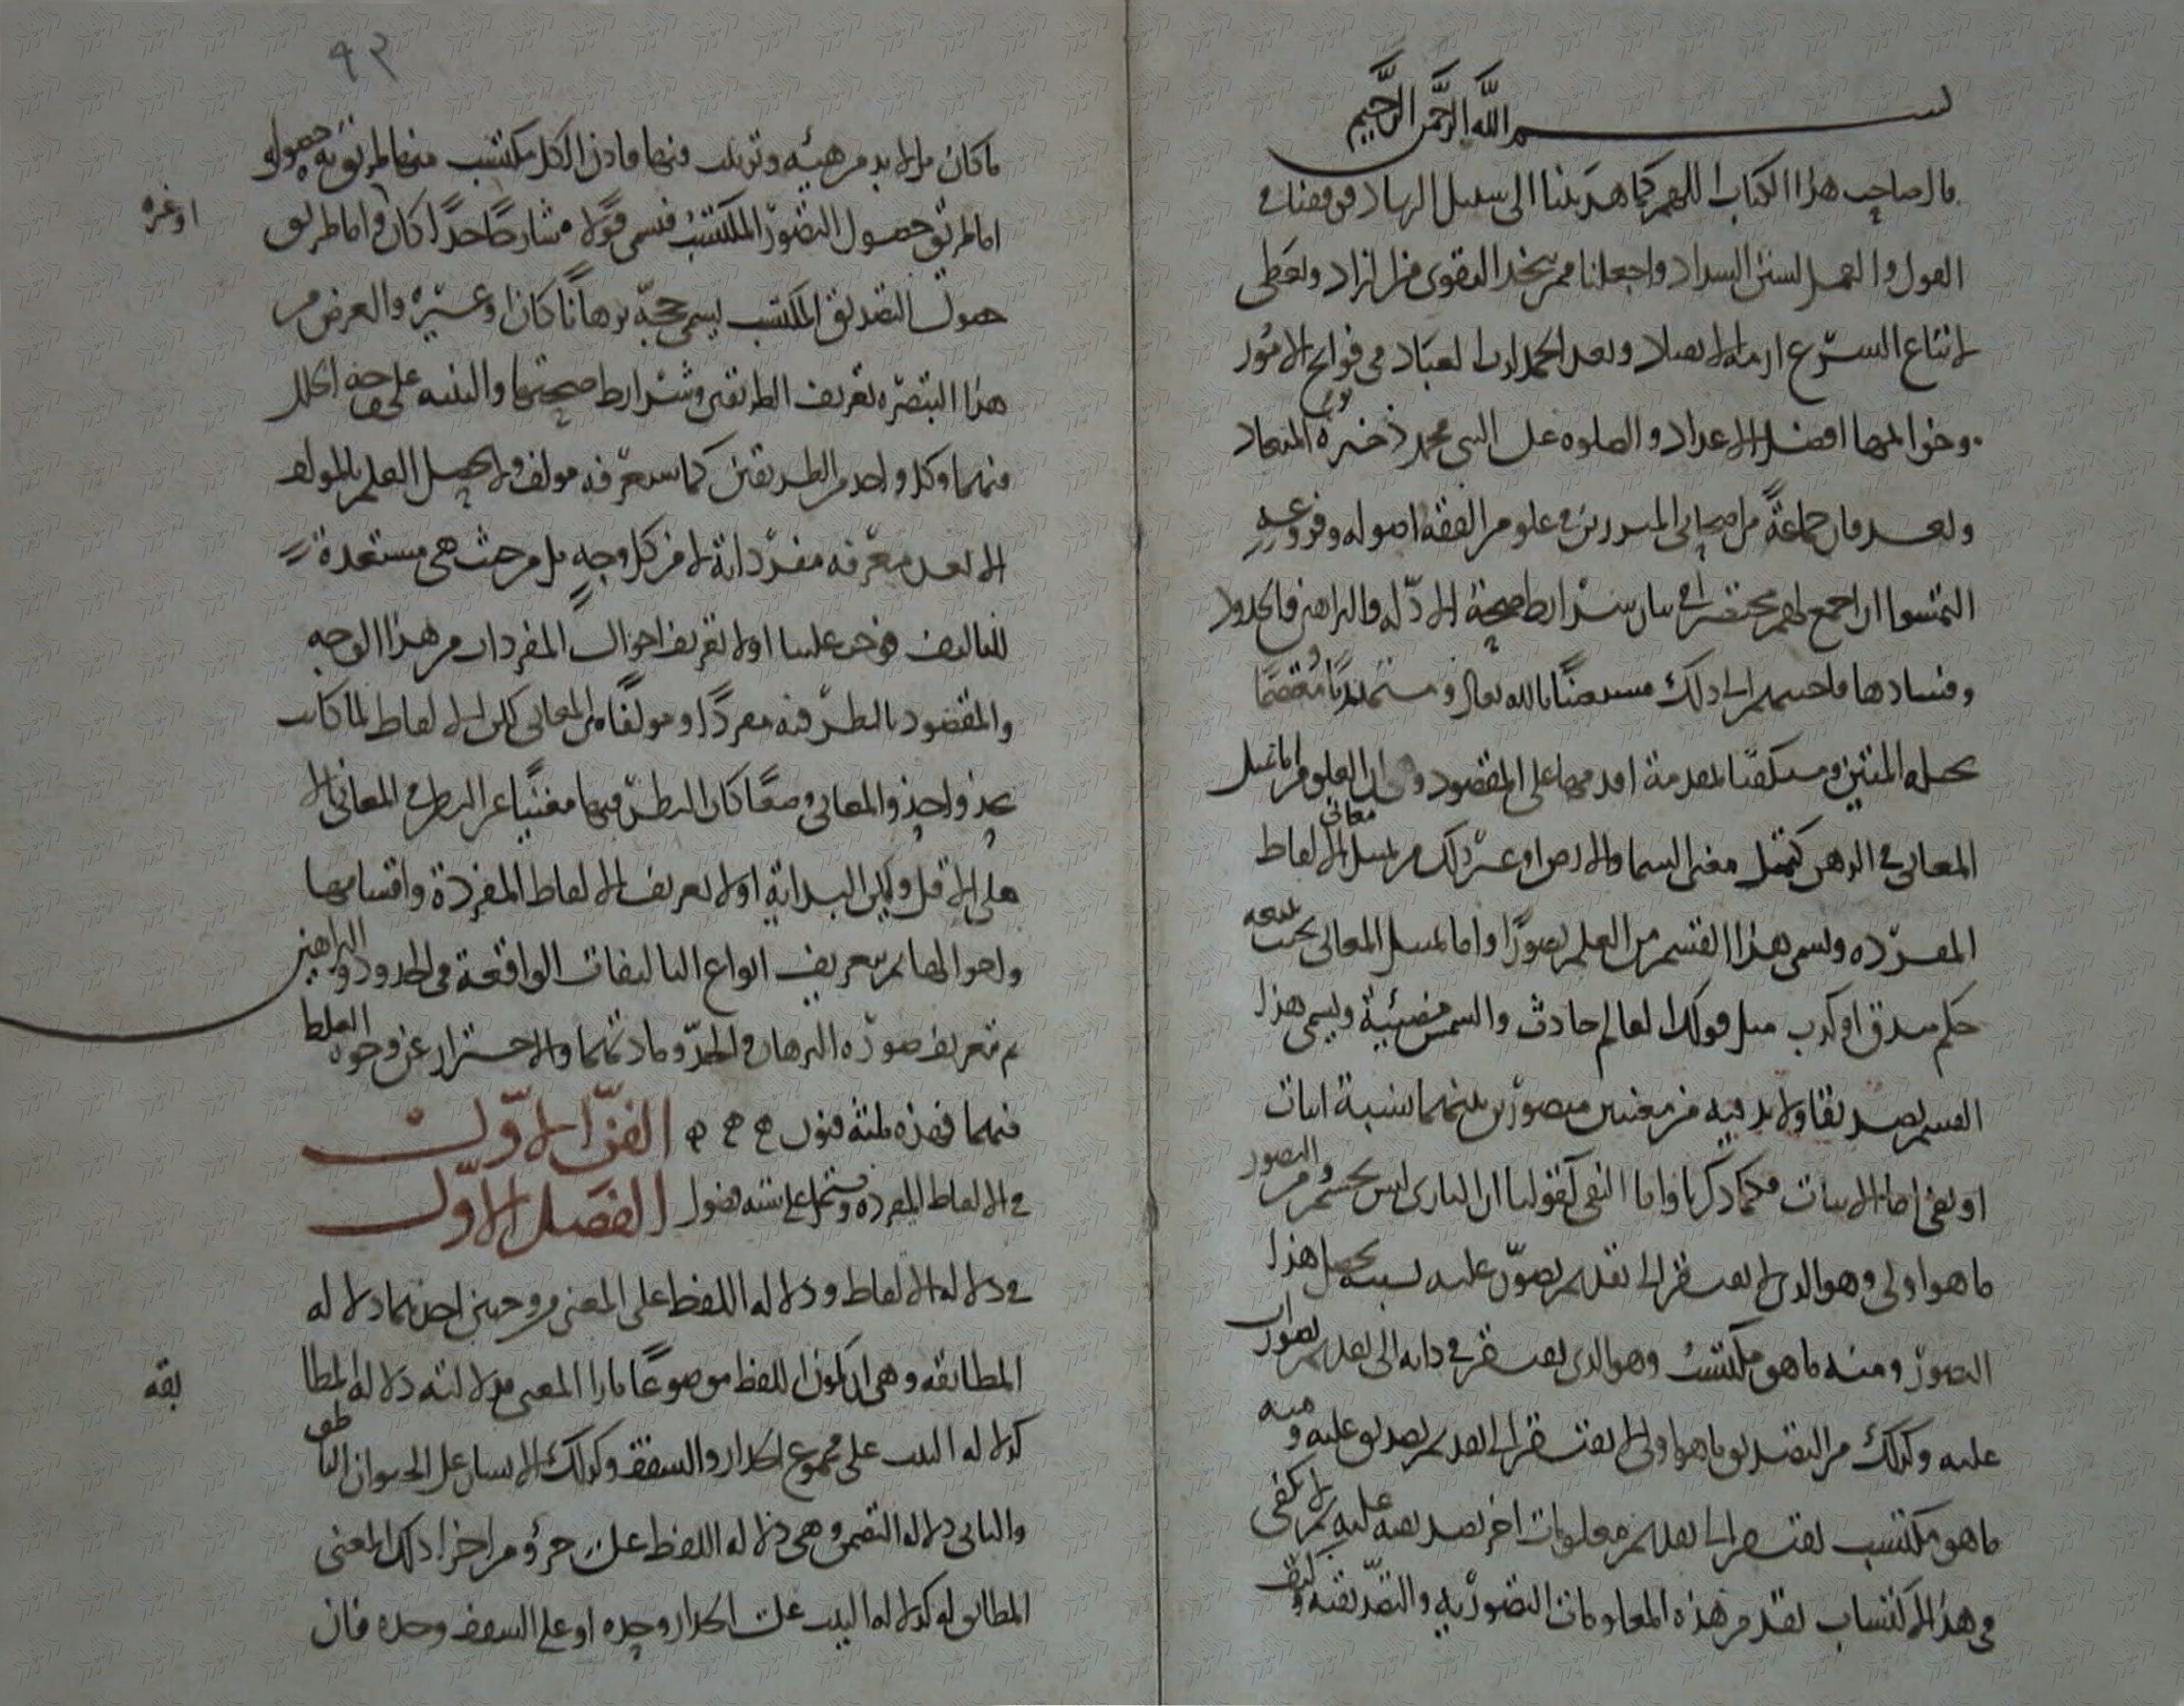 بسم الله الرحمن الرحيم
قال صاحب هذا الكتاب اللهم كما هديتنا الى سبيل الرشاد فوفقنا في
القول والعمل لسنن السداد واجعلنا ممن يتخذ التقوى خير الزاد ويعطى
لاتباع الشرع ازمة الانقياد وبعد الحمد لرب العباد فى فواتح الامور
وخواتمها افضل الاعداد والصلوه على النبي محمد ذخيرة المعاد
وبعد فان جماعةً من اصحابى المبرزين في علوم الفقه اصوله وفروعه
التمسوا ان اجمع لهم مختصرا في بيان شرايط صحة الادله والبراهين والحدود
وفسادها فاجبتهم الى ذلك مستعينًا بالله تعالى ومستمدًا معتصمًا
بحبله المتين ومستكفيا لمقدمة اقدمها على المقصود وهى ان العلوم اما تمثل
المعاني في الذهن كتمثل معنى السما والارض او غير ذلك من تمثل معاني الالفاظ
المفرده ويسمى هذا القسم من العلم تصورًا واما تمثل المعانى بحيث يتبعه
حكم صدق او كذب مثل قولك العالم حادث والشمس مضيئة ويسمى هذا
القسم تصديقا ولا بد فيه من معنيين متصورين بينهما نسبة اثبات
او نفى اما الاثبات فكما ذكرنا واما النفى كقولنا ان البارى ليس بجسم ومن التصور
ما هو اولى وهو الذى لا يفتقر الى تقديم تصور عليه بسببه يحصل هذا
التصور ومنه ما هو مكتسب وهو الذى يفتقر في ذاته الى تقديم تصورات
عليه وكذلك من التصديق ما هو اولى لا يفتقر الى تقديم تصديق عليه ومنه
ما هو مكتسب يفتقر الى تقديم معلومات اخر تصديقيه عليه ثم لا يكفى
فى هذا الاكتساب تقدم هذه المعلومات التصوريه والتصديقيه وكيف
٩٢
ما كان بل لا بد من هيئه وترتيب فيها فاذن لكل مكتسب منهما طريق به حصوله
اما طريق حصول التصور المكتسب فيسمى قولا شارحًا حدًا كان او غيره واما طريق
حصول التصديق المكتسب يسمى حجة برهانًا كان او غيره والغرض من
هذا التبصره تعريف الطريقين وشرايط صحتهما والتنبيه على جهة الخلل
فيهما وكل واحد من الطريقين كما ستعرفه مولف ولا يحصل العلم بالمولف
الا بعد معرفه مفرداته لا من كل وجهٍ بل من حيث هى مستعدة
للتاليف فوجب علينا اولا تعريف احوال المفردات من هذا الوجه
والمقصود بالنظر فيه مفردًا ومولفًا من المعانى لكن الالفاظ لما كانت
يحذو احذو المعانى وضعًا كان النظر فيها مغنيًا عن النظر في المعانى الا
على الاقل وليكن البداية اولا تعريف الالفاظ المفردة واقسامها
واحوالها ثم بتعريف انواع التاليفات الواقعة فى الحدود والبراهين
ثم تعريف صوره البرهان والحد ومادتهما والاحتراز عن وجوه الغلط
فيهما فهذه ثلثة فنون الفن الاول
في الالفاظ المفرده ويشتمل على سته فصول الفصل الاول
في دلاله الالفاظ ودلاله اللفظ على المعنى من وجهين احدهما دلاله
المطابقه وهى ان يكون اللفظ موضوعًا بازا المعنى فدلالته دلاله المطا
بقه
كدلاله البيت على مجموع الجدار والسقف وكذلك الانسان على الحيوان الناطق
والثانى دلاله التضمن وهى دلاله اللفظ على جزو من اجزا ذلك المعنى
المطابق له كدلاله البيت على الجدار وحده او على السقف وحده فان